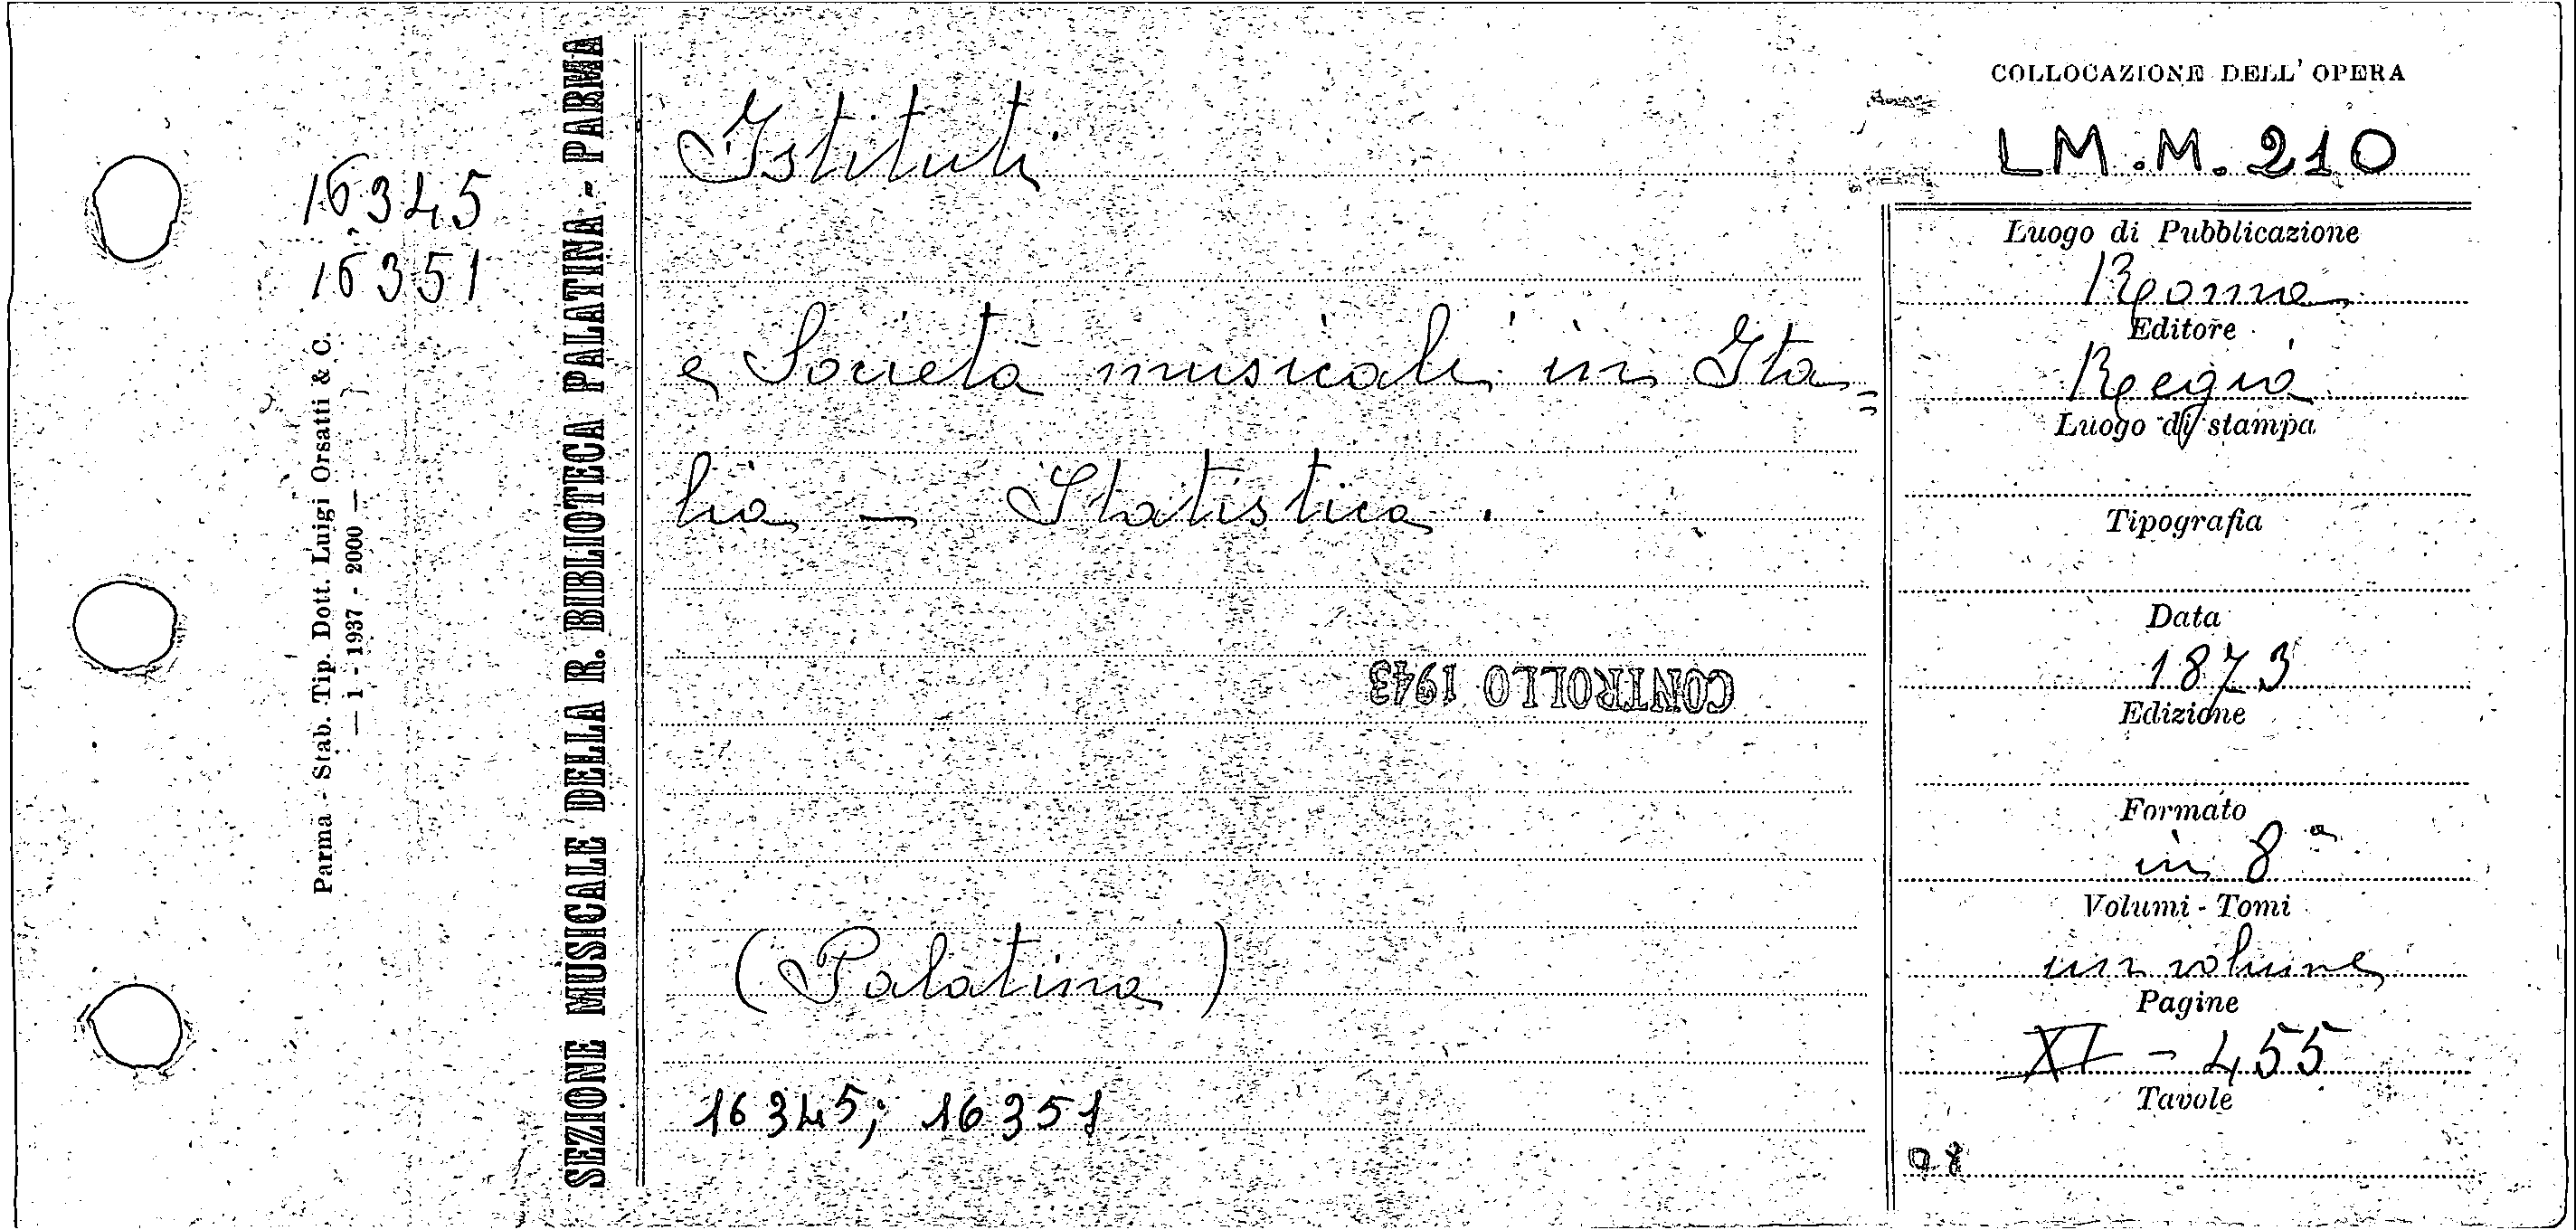 16345
16351
Parma - Stab. Tip. Dott. Luigi Orsatti & C.
— 1 - 1937 - 2000 —
SEZIONE MUSICALE DELLA R. BIBLIOTECA PALATINA - PARMA
Istituti
e Società musicali in Ita=
lia — Statistica.
CONTROLLO 1943
(Palatina)
16345; 16351
COLLOCAZIONE DELL' OPERA
LM.M.210
Luogo di Pubblicazione
Roma
Editore
Regia
Luogo di stampa
Tipografia
Data
1873
Edizione
Formato
in 8º
Volumi - Tomi
un volume
Pagine
XI - 455
Tavole